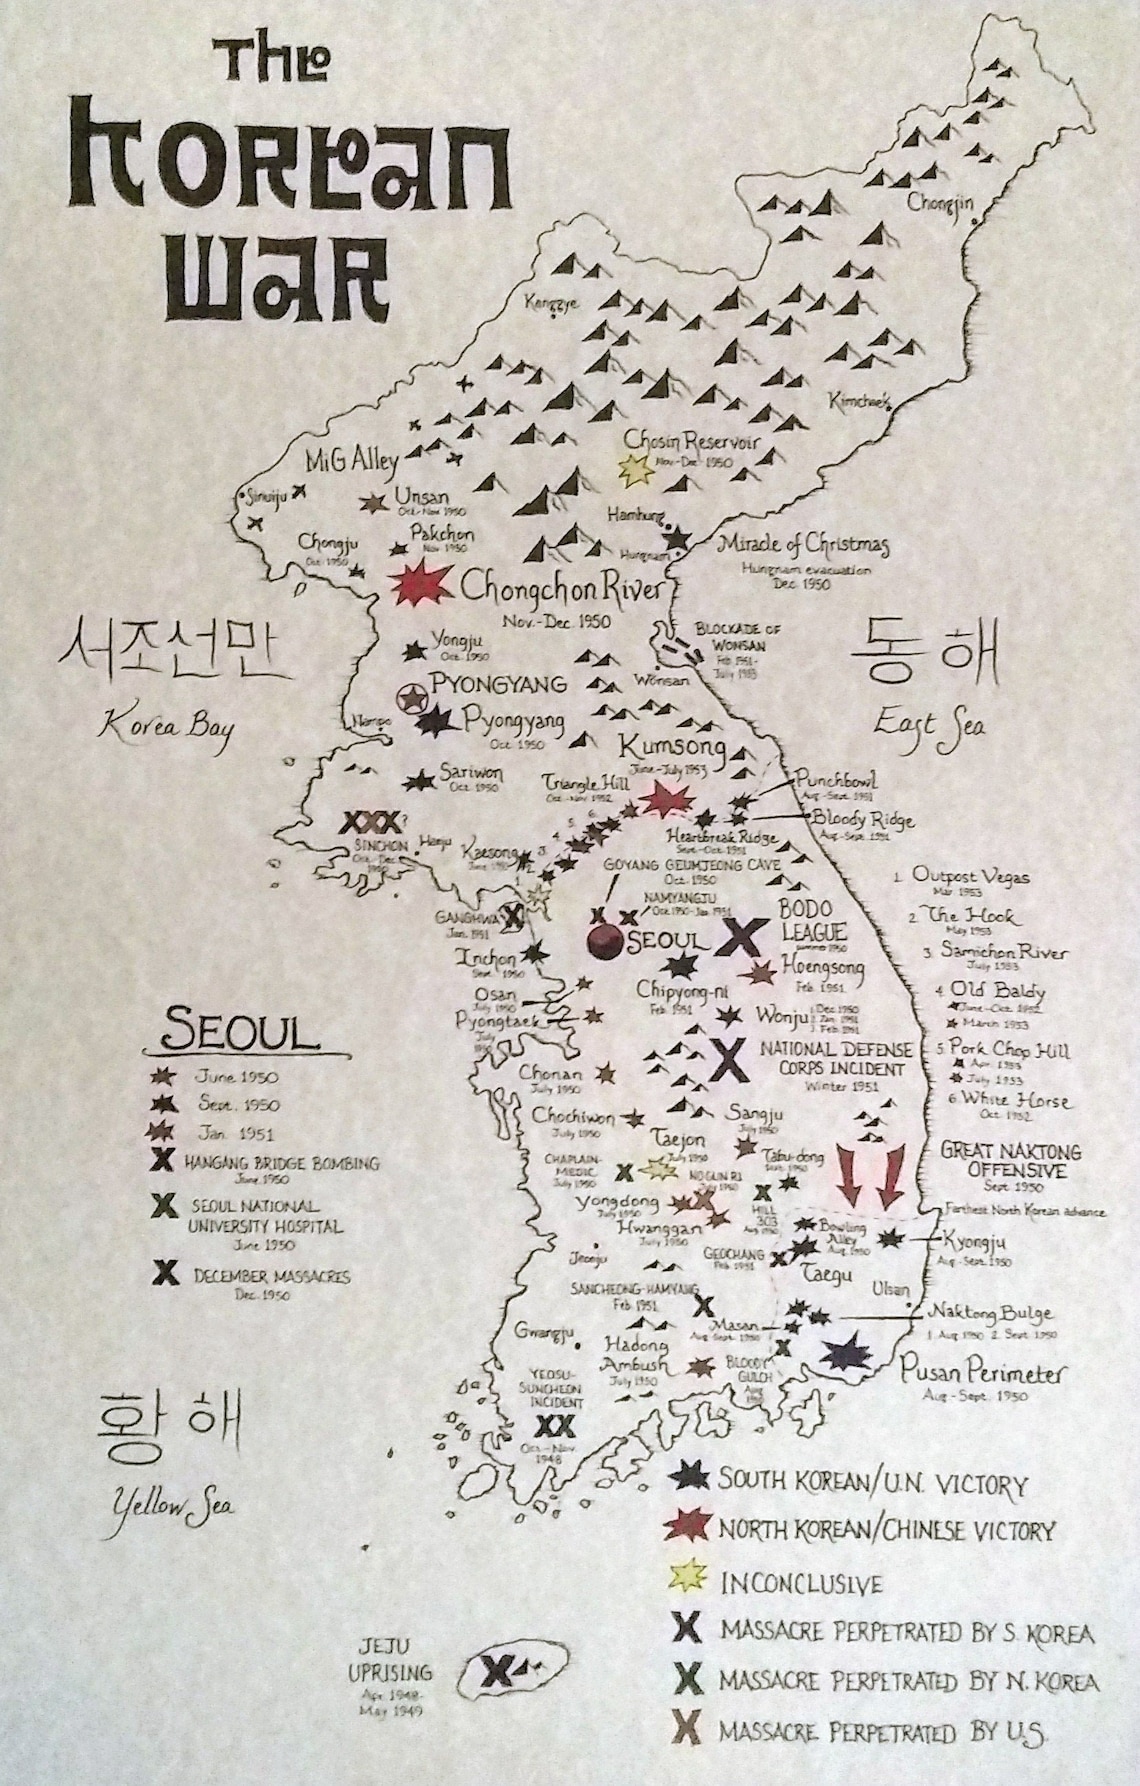 The
Korean
War
Chongjin
Kanggye
Kimchaek
Chosin Reservoir
Nov-Dec 1950
MiG Alley
Sinuiju
Unsan
Oct-Nov 1950
Hamhung
Pakchon
Nov 1950
Chongju
Oct 1950
Hungnam
Miracle of Christmas
Hungnam evacuation
Dec. 1950
Chongchon River
Nov.-Dec. 1950
서조선만
Korea Bay
동해
East Sea
BLOCKADE OF
WONSAN
Feb 1951-
July 1953
Yongju
Oct. 1950
Wonsan
PYONGYANG
Nampo
Pyongyang
Oct. 1950
Kumsong
June-July 1953
Sariwon
Oct. 1950
Triangle Hill
Oct.-Nov. 1952
Punchbowl
Aug-Sept. 1951
Bloody Ridge
Aug-Sept. 1951
XXX?
SINCHON
Oct.-Dec.
1950
Haeju
Kaesong
Heartbreak Ridge
Sept-Oct. 1951
6.
5.
4.
3.
2.
1.
GOYANG GEUMJEONG CAVE
Oct. 1950
NAMYANGJU
Oct. 1950-Jan. 1951
GANGHWA
Jan. 1951
SEOUL
BODO
LEAGUE
summer 1950
Inchon
Sept. 1950
Chipyong-ni
Feb. 1951
Hoengsong
Feb. 1951
Osan
July 1950
Pyongtaek
July
1950
Wonju
1. Dec. 1950
2. Jan. 1951
3. Feb. 1951
NATIONAL DEFENSE
CORPS INCIDENT
Winter 1951
1. Outpost Vegas
Mar 1953
2. The Hook
May 1953
3. Samichon River
July 1953
4. Old Baldy
June-Oct. 1952
March 1953
5. Pork Chop Hill
Apr. 1953
July 1953
6. White Horse
Oct. 1952
SEOUL
June 1950
Sept. 1950
Jan. 1951
HANGANG BRIDGE BOMBING
June 1950
SEOUL NATIONAL
UNIVERSITY HOSPITAL
June 1950
DECEMBER MASSACRES
Dec. 1950
Chonan
July 1950
Chochiwon
July 1950
Sangju
July 1950
Taejon
July 1950
CHAPLAIN-
MEDIC
July 1950
NO GUN RI
July 1950
Tabu-dong
Sept. 1950
HILL
303
Aug 1950
Yongdong
July 1950
Hwanggan
July 1950
GREAT NAKTONG
OFFENSIVE
Sept 1950
Farthest North Korean advance
Bowling
Alley
Aug. 1950
Kyongju
Aug-Sept. 1950
Jeonju
GEOCHANG
Feb. 1951
Taegu
Ulsan
SANCHEONG-HAMYANG
Feb. 1951
Masan
Aug-Sept. 1950
Naktong Bulge
1. Aug. 1950 2. Sept. 1950
Gwangju
Hadong
Ambush
July 1950
BLOODY
GULCH
Aug.
1950
Pusan Perimeter
Aug-Sept. 1950
YEOSU-
SUNCHEON
INCIDENT
XX
Oct.-Nov.
1948
황해
Yellow Sea
SOUTH KOREAN/U.N. VICTORY
NORTH KOREAN/CHINESE VICTORY
INCONCLUSIVE
MASSACRE PERPETRATED BY S. KOREA
MASSACRE PERPETRATED BY N. KOREA
MASSACRE PERPETRATED BY U.S.
JEJU
UPRISING
Apr. 1948-
May 1949